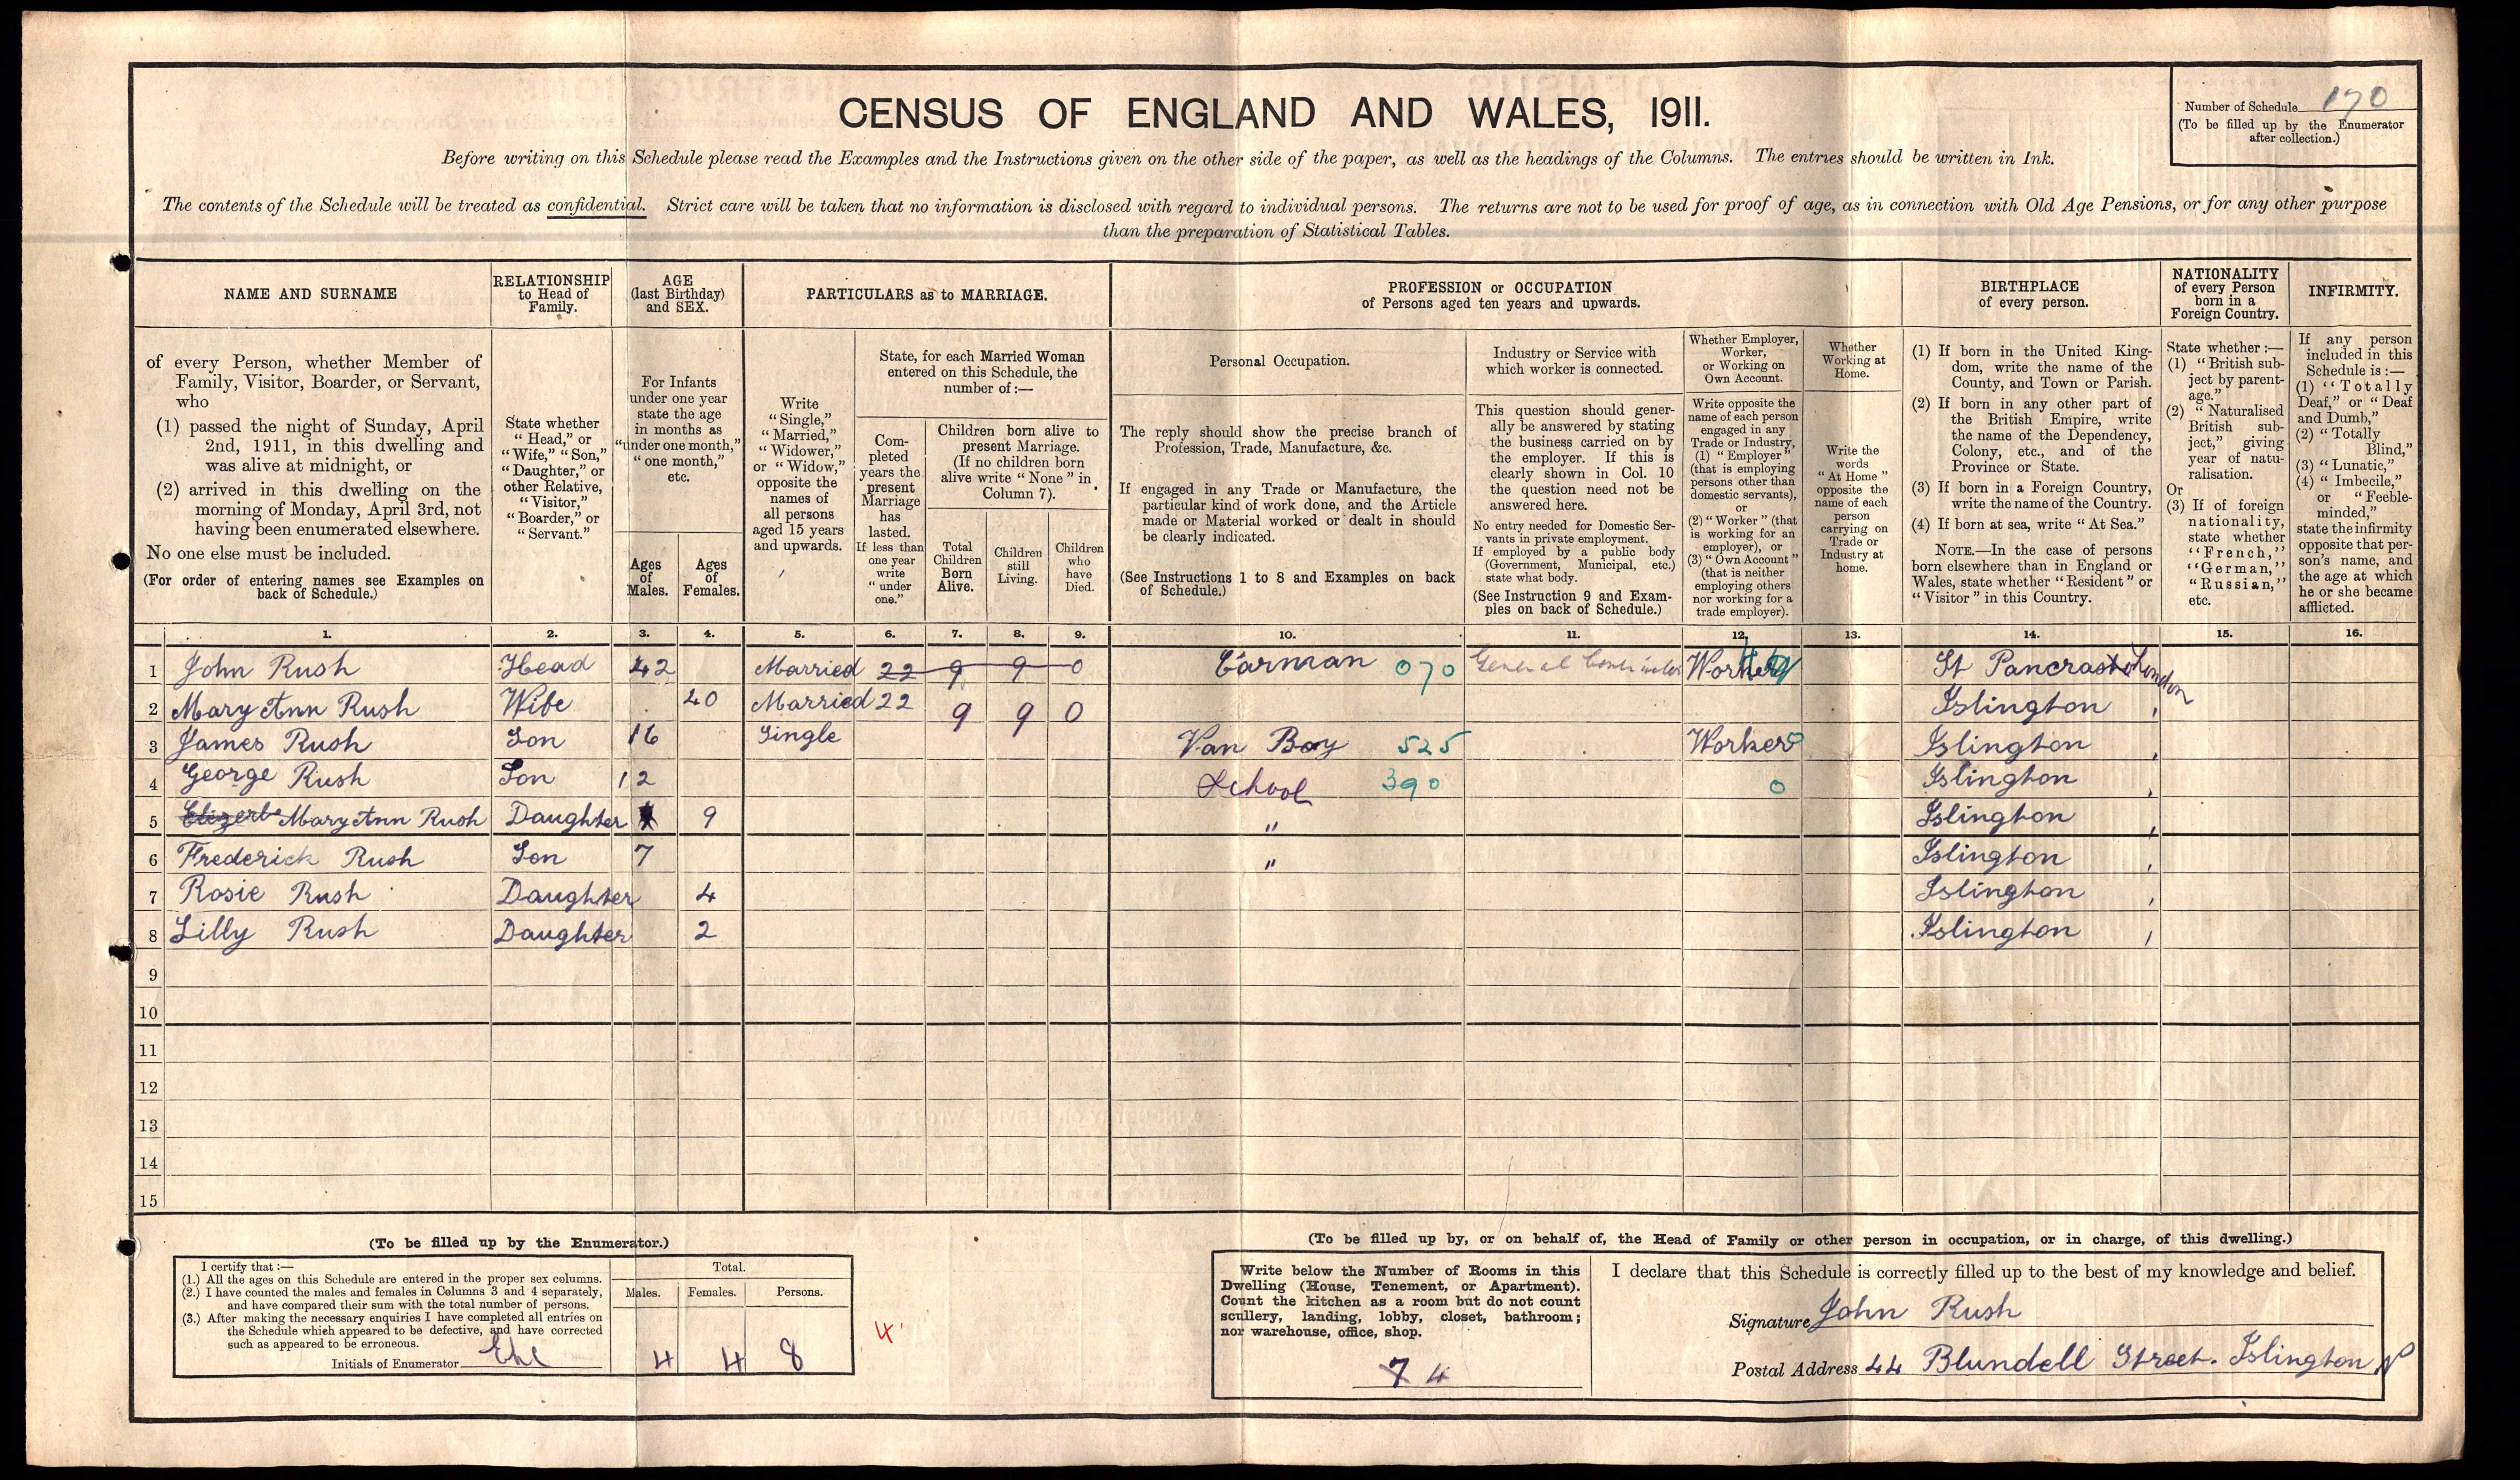 CENSUS OF ENGLAND AND WALES, 1911.
Number of Schedule 170
(To be filled up by the Enumerator
after collection.)
Before writing on this Schedule please read the Examples and the Instructions given on the other side of the paper, as well as the headings of the Columns. The entries should be written in Ink.
The contents of the Schedule will be treated as confidential. Strict care will be taken that no information is disclosed with regard to individual persons. The returns are not to be used for proof of age, as in connection with Old Age Pensions, or for any other purpose
than the preparation of Statistical Tables.
NAME AND SURNAME
of every Person, whether Member of
Family, Visitor, Boarder, or Servant,
who
(1) passed the night of Sunday, April
2nd, 1911, in this dwelling and
was alive at midnight, or
(2) arrived in this dwelling on the
morning of Monday, April 3rd, not
having been enumerated elsewhere.
No one else must be included.
(For order of entering names see Examples on
back of Schedule.)
RELATIONSHIP
to Head of
Family.
State whether
"Head," or
"Wife," "Son,"
"Daughter," or
other Relative,
"Visitor,"
"Boarder," or
"Servant."
AGE
(last Birthday)
and SEX.
For Infants
under one year
state the age
in months as
"under one month,"
"one month,"
etc.
Ages
of
Males.
Ages
of
Females.
PARTICULARS as to MARRIAGE.
Write
"Single,"
"Married,"
"Widower,"
or "Widow,"
opposite the
names of
all persons
aged 15 years
and upwards.
State, for each Married Woman
entered on this Schedule, the
number of :—
Com-
pleted
years the
present
Marriage
has
lasted.
If less than
one year
write
"under
one."
Children born alive to
present Marriage.
(If no children born
alive write "None" in
Column 7).
Total
Children
Born
Alive.
Children
still
Living.
Children
who
have
Died.
PROFESSION or OCCUPATION
of Persons aged ten years and upwards.
Personal Occupation.
The reply should show the precise branch of
Profession, Trade, Manufacture, &c.
If engaged in any Trade or Manufacture, the
particular kind of work done, and the Article
made or Material worked or dealt in should
be clearly indicated.
(See Instructions 1 to 8 and Examples on back
of Schedule.)
Industry or Service with
which worker is connected.
This question should gener-
ally be answered by stating
the business carried on by
the employer. If this is
clearly shown in Col. 10
the question need not be
answered here.
No entry needed for Domestic Ser-
vants in private employment.
If employed by a public body
(Government, Municipal, etc.)
state what body.
(See Instruction 9 and Exam-
ples on back of Schedule.)
Whether Employer,
Worker,
or Working on
Own Account.
Write opposite the
name of each person
engaged in any
Trade or Industry,
(1) "Employer"
(that is employing
persons other than
domestic servants),
or
(2) "Worker" (that
is working for an
employer), or
(3) "Own Account"
(that is neither
employing others
nor working for a
trade employer).
Whether
Working at
Home.
Write the
words
"At Home"
opposite the
name of each
person
carrying on
Trade or
Industry at
home.
BIRTHPLACE
of every person.
(1) If born in the United King-
dom, write the name of the
County, and Town or Parish.
(2) If born in any other part of
the British Empire, write
the name of the Dependency,
Colony, etc., and of the
Province or State.
(3) If born in a Foreign Country,
write the name of the Country.
(4) If born at sea, write "At Sea."
NOTE.—In the case of persons
born elsewhere than in England or
Wales, state whether "Resident" or
"Visitor" in this Country.
NATIONALITY
of every Person
born in a
Foreign Country.
State whether :—
(1) "British sub-
ject by parent-
age."
(2) "Naturalised
British sub-
ject," giving
year of natu-
ralisation.
Or
(3) If of foreign
nationality,
state whether
"French,"
"German,"
"Russian,"
etc.
INFIRMITY.
If any person
included in this
Schedule is :—
(1) "Totally
Deaf," or "Deaf
and Dumb,"
(2) "Totally
Blind,"
(3) "Lunatic,"
(4) "Imbecile,"
or "Feeble-
minded,"
state the infirmity
opposite that per-
son's name, and
the age at which
he or she became
afflicted.
1. 2. 3. 4. 5. 6. 7. 8. 9. 10. 11. 12. 13. 14. 15. 16.
1 John Rush Head 42 Married 22 9 9 0 Carman 070 General Worker St Pancras London
2 Mary Ann Rush Wife 40 Married 22 9 9 0 Islington
3 James Rush Son 16 Single Van Boy 525 Worker 0 Islington
4 George Rush Son 12 School 390 0 Islington
5 Mary Ann Rush Daughter 9 " Islington
6 Frederick Rush Son 7 " Islington
7 Rosie Rush Daughter 4 Islington
8 Lilly Rush Daughter 2 Islington
9
10
11
12
13
14
15
(To be filled up by the Enumerator.)
I certify that :—
(1.) All the ages on this Schedule are entered in the proper sex columns.
(2.) I have counted the males and females in Columns 3 and 4 separately,
and have compared their sum with the total number of persons.
(3.) After making the necessary enquiries I have completed all entries on
the Schedule which appeared to be defective, and have corrected
such as appeared to be erroneous.
Initials of Enumerator
Total.
Males. Females. Persons.
4 4 8
4
(To be filled up by, or on behalf of, the Head of Family or other person in occupation, or in charge, of this dwelling.)
Write below the Number of Rooms in this
Dwelling (House, Tenement, or Apartment).
Count the kitchen as a room but do not count
scullery, landing, lobby, closet, bathroom;
nor warehouse, office, shop.
7 4
I declare that this Schedule is correctly filled up to the best of my knowledge and belief.
Signature John Rush
Postal Address 44 Blundell Street. Islington N